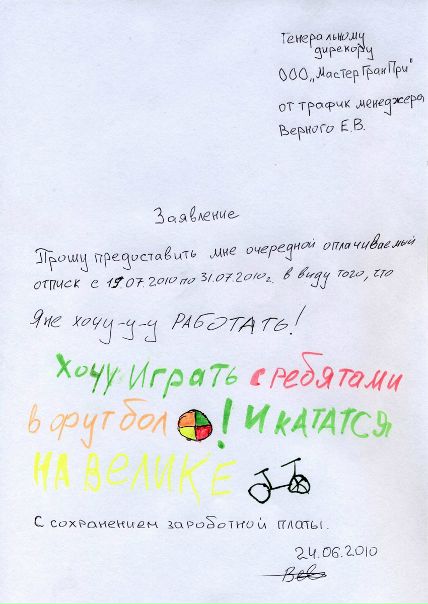 Генеральному
дирекору
ООО „МастерГранПри"
от трафик менеджера
Верного Е.В.
Заявление
Прошу предоставить мне очередной оплачиваемый
отписк с 19.07.2010 по 31.07.2010г. в виду того, что
Я не хочу-у-у РАБОТАТЬ!
Хочу Играть с ребятами
в футбол ! И кататся
НА ВеЛИКЕ
С сохранением зароботной платы.
24.06.2010